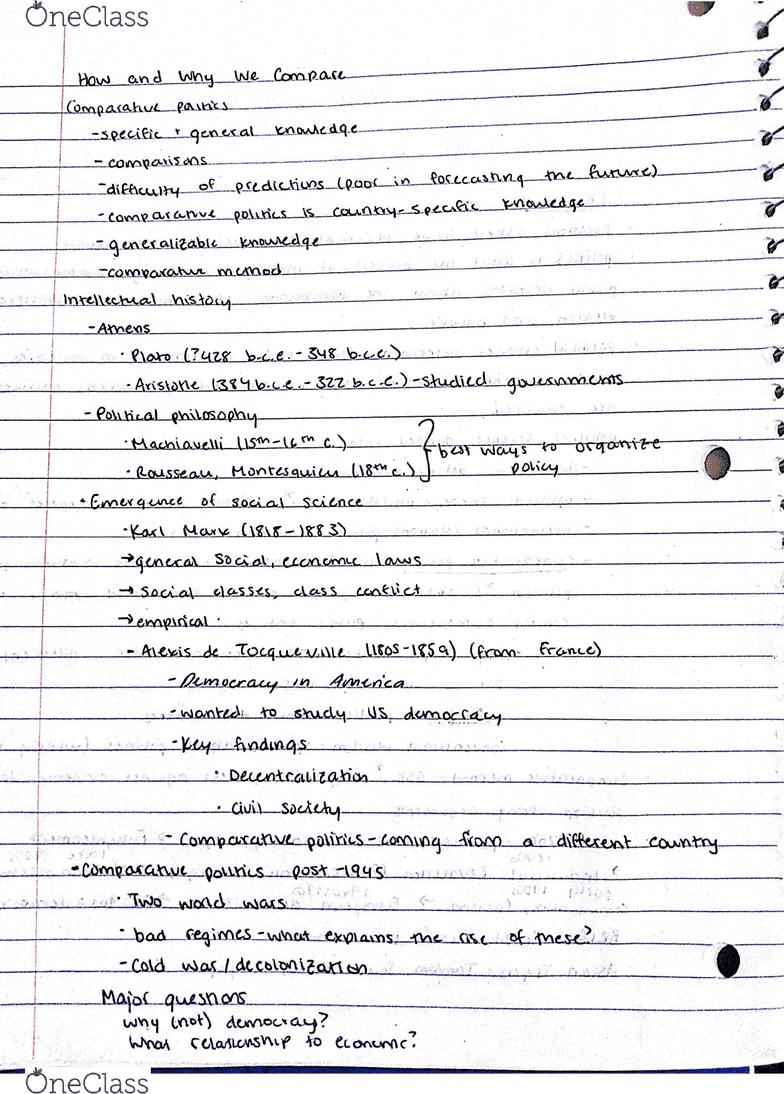 OneClass
How and Why We Compare
Comparative politics
-specific + general knowledge
-comparisons
-difficulty of predictions (poor in forecasting the future)
-comparative politics is country-specific knowledge
-generalizable knowledge
-comparative method
Intellectual history
-Athens
·Plato (?428 b.c.e.-348 b.c.e.)
·Aristotle (384 b.c.e.-322 b.c.e.)-studied governments
-Political philosophy
·Machiavelli (15th-16th c.)
·Rousseau, Montesquieu (18th c.)
} best ways to organize
policy
·Emergence of social science
·Karl Marx (1818-1883)
→general social, economic laws
→social classes, class conflict
→empirical
-Alexis de Tocqueville (1805-1859) (from France)
-Democracy in America
-wanted to study US democracy
-Key findings
·Decentralization
·Civil society
-Comparative politics-coming from a different country
-Comparative politics post-1945
·Two world wars
·bad regimes-what explains the rise of these?
-Cold war/decolonization
Major questions
Why (not) democracy?
What relationship to economic?
OneClass